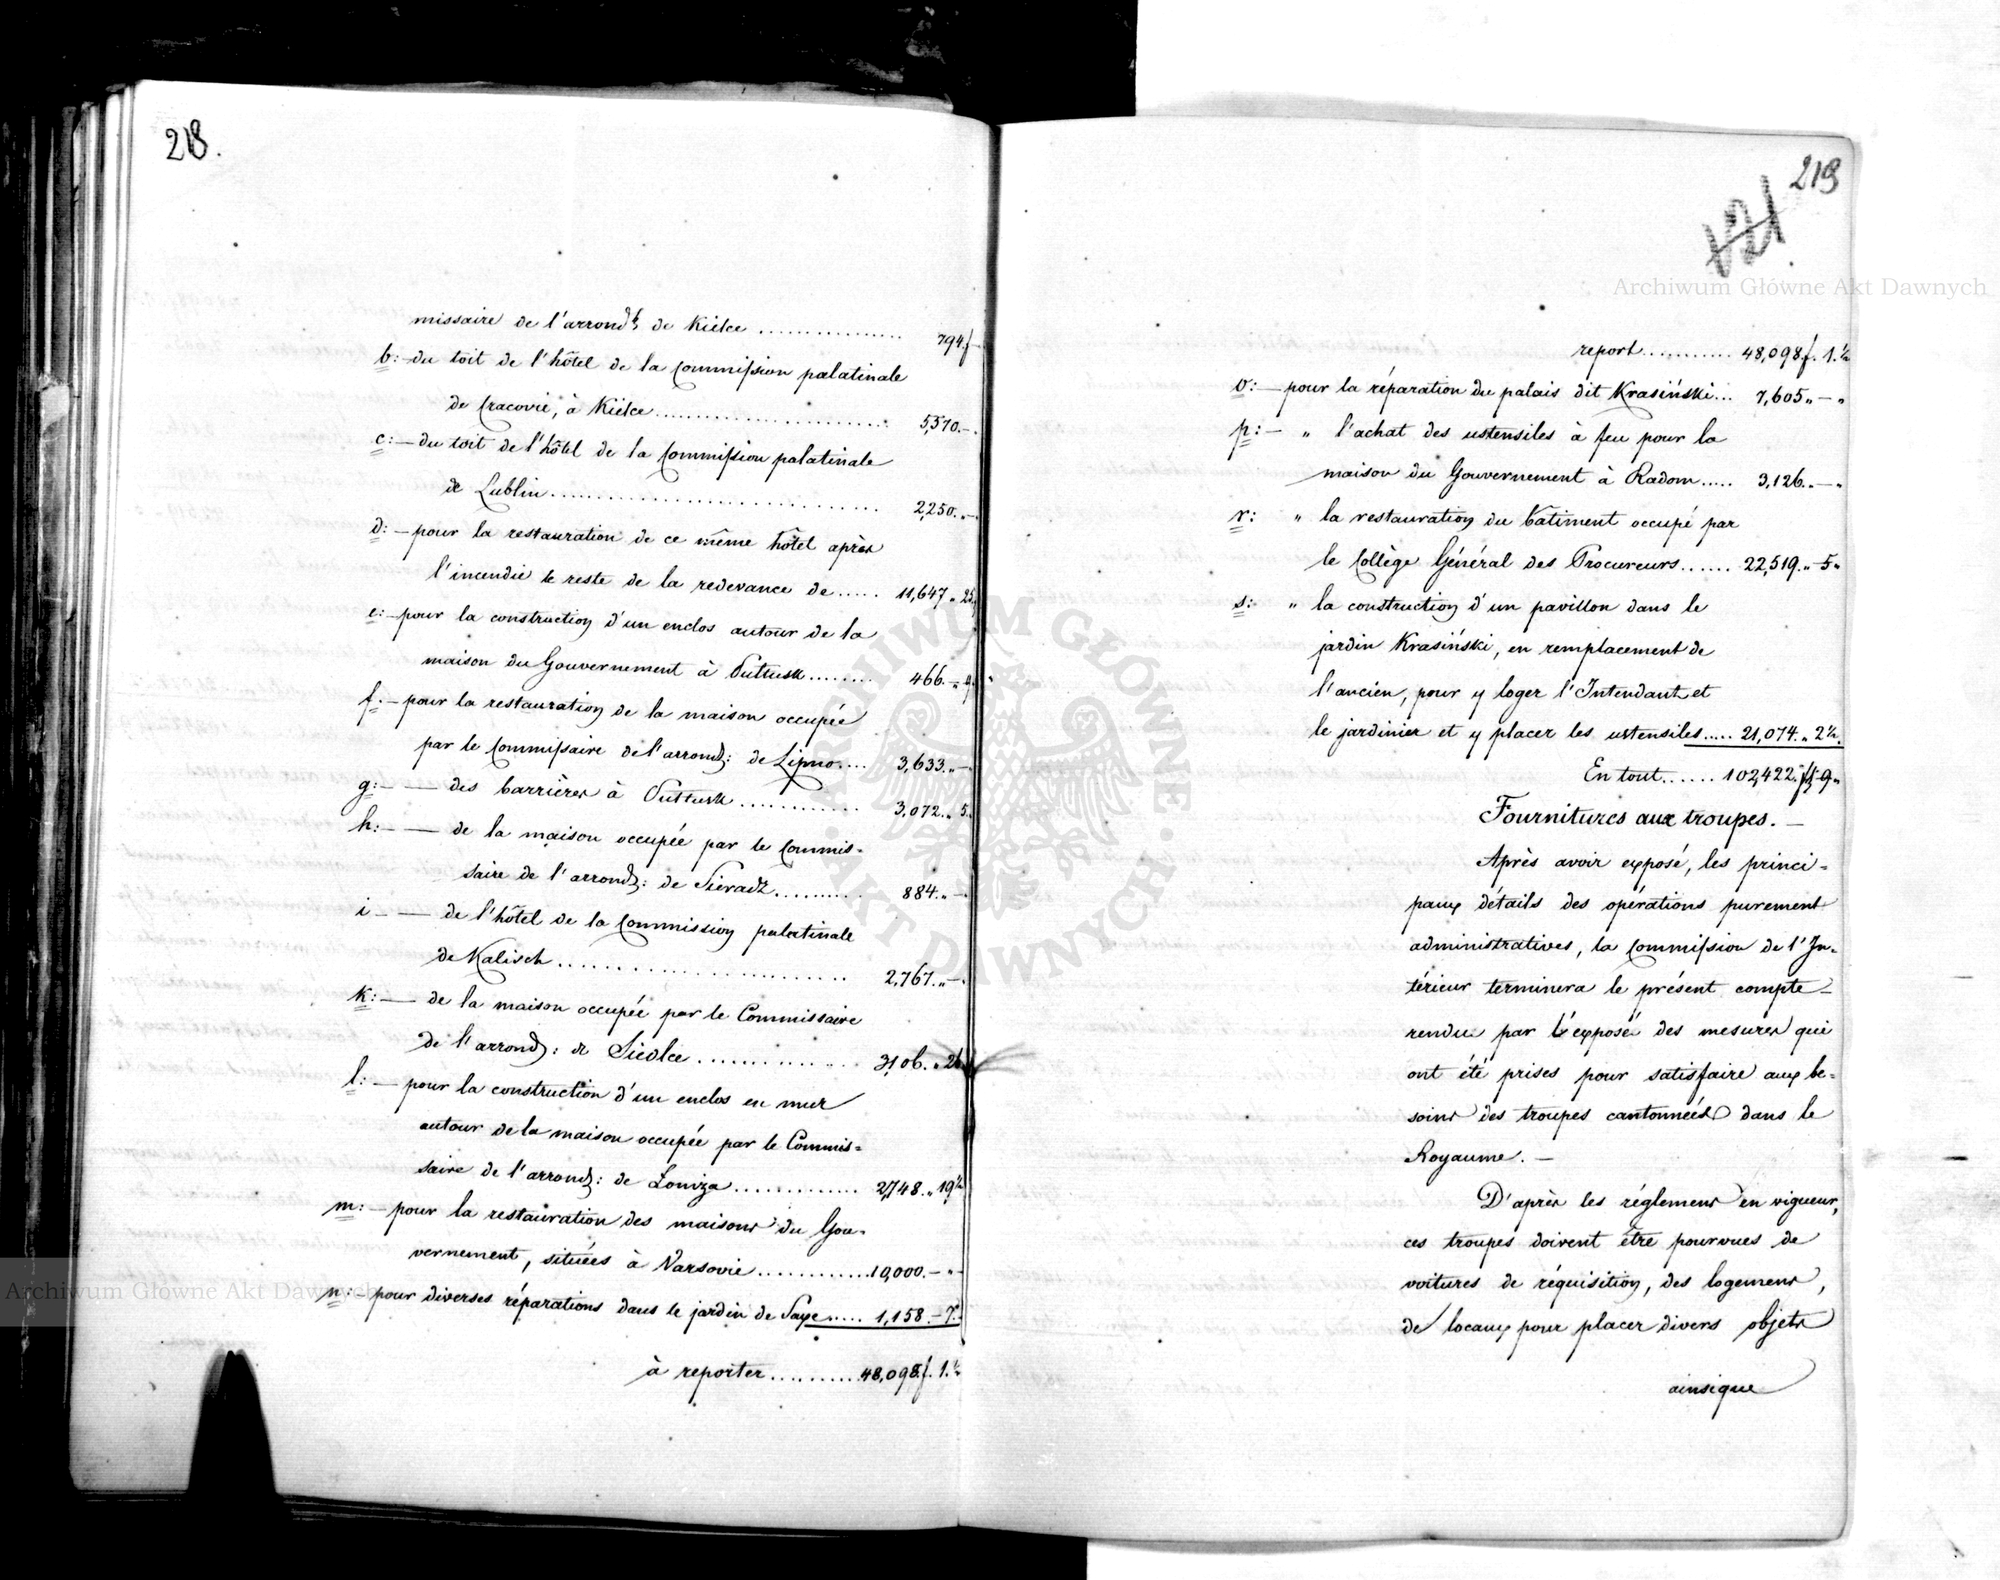 218.
missaire de l'arrondt de Kielce ............... 794.f –
b: – du toit de l'hôtel de la Commission palatinale
de Cracovie, à Kielce ......................... 5,570. – .
c: – du toit de l'hôtel de la Commission palatinale
de Lublin .............................. 2,250. „ –
d: – pour la restauration de ce même hôtel après
l'incendie le reste de la redevance de ..... 11,647 „ 25.
e: – pour la construction d'un enclos autour de la
maison du Gouvernement à Pultusk ........ 466. – „ 9.
f: – pour la restauration de la maison occupée
par le Commissaire de l'arrond: de Lipno .... 3,633. „ –
g: – — des barrières à Pultusk ............ 3,072. „ 5.
h: – — de la maison occupée par le Commis=
saire de l'arrond: de Sieradz .......... 884. „ –
i – — de l'hôtel de la Commission palatinale
de Kalisch ......................... 2,767. „ – .
k: – — de la maison occupée par le Commissaire
de l'arrond: de Siedlce ............... 3,106. „ 26
l: – pour la construction d'un enclos en mur
autour de la maison occupée par le Commis=
saire de l'arrond: de Lomza ............. 2,748. „ 19½
m: – pour la restauration des maisons du Gou=
vernement, situées à Varsovie ............ 10,000. – „ –
n: – pour diverses réparations dans le jardin de Saxe ..... 1,158. – 7.
à reporter .......... 48,098.f. 1.½
219
121
report ........... 48,098.f. 1.½
o: – pour la réparation du palais dit Krasiński ... 7,605 „ – „
p: – „ l'achat des ustensiles à feu pour la
maison du Gouvernement à Radom ..... 3,126. „ – „
r: „ la restauration du bâtiment occupé par
le Collège Général des Procureurs ...... 22,519. „ 5 „
s: „ la construction d'un pavillon dans le
jardin Krasiński, en remplacement de
l'ancien, pour y loger l'Intendant et
le jardinier et y placer les ustensiles ..... 21,074. „ 2½.
En tout ...... 102,422.f. 9 „
Fournitures aux troupes. –
Après avoir exposé, les princi=
paux détails des opérations purement
administratives, la Commission de l'In=
térieur terminera le présent compte–
rendu par l'exposé des mesures qui
ont été prises pour satisfaire aux be=
soins des troupes cantonnées dans le
Royaume. –
D'après les réglemens en vigueur,
ces troupes doivent être pourvues de
voitures de réquisition, des logemens,
de locaux pour placer divers objets
ainsique
Archiwum Główne Akt Dawnych
ARCHIWUM GŁÓWNE · AKT DAWNYCH ·
Archiwum Główne Akt Dawnych